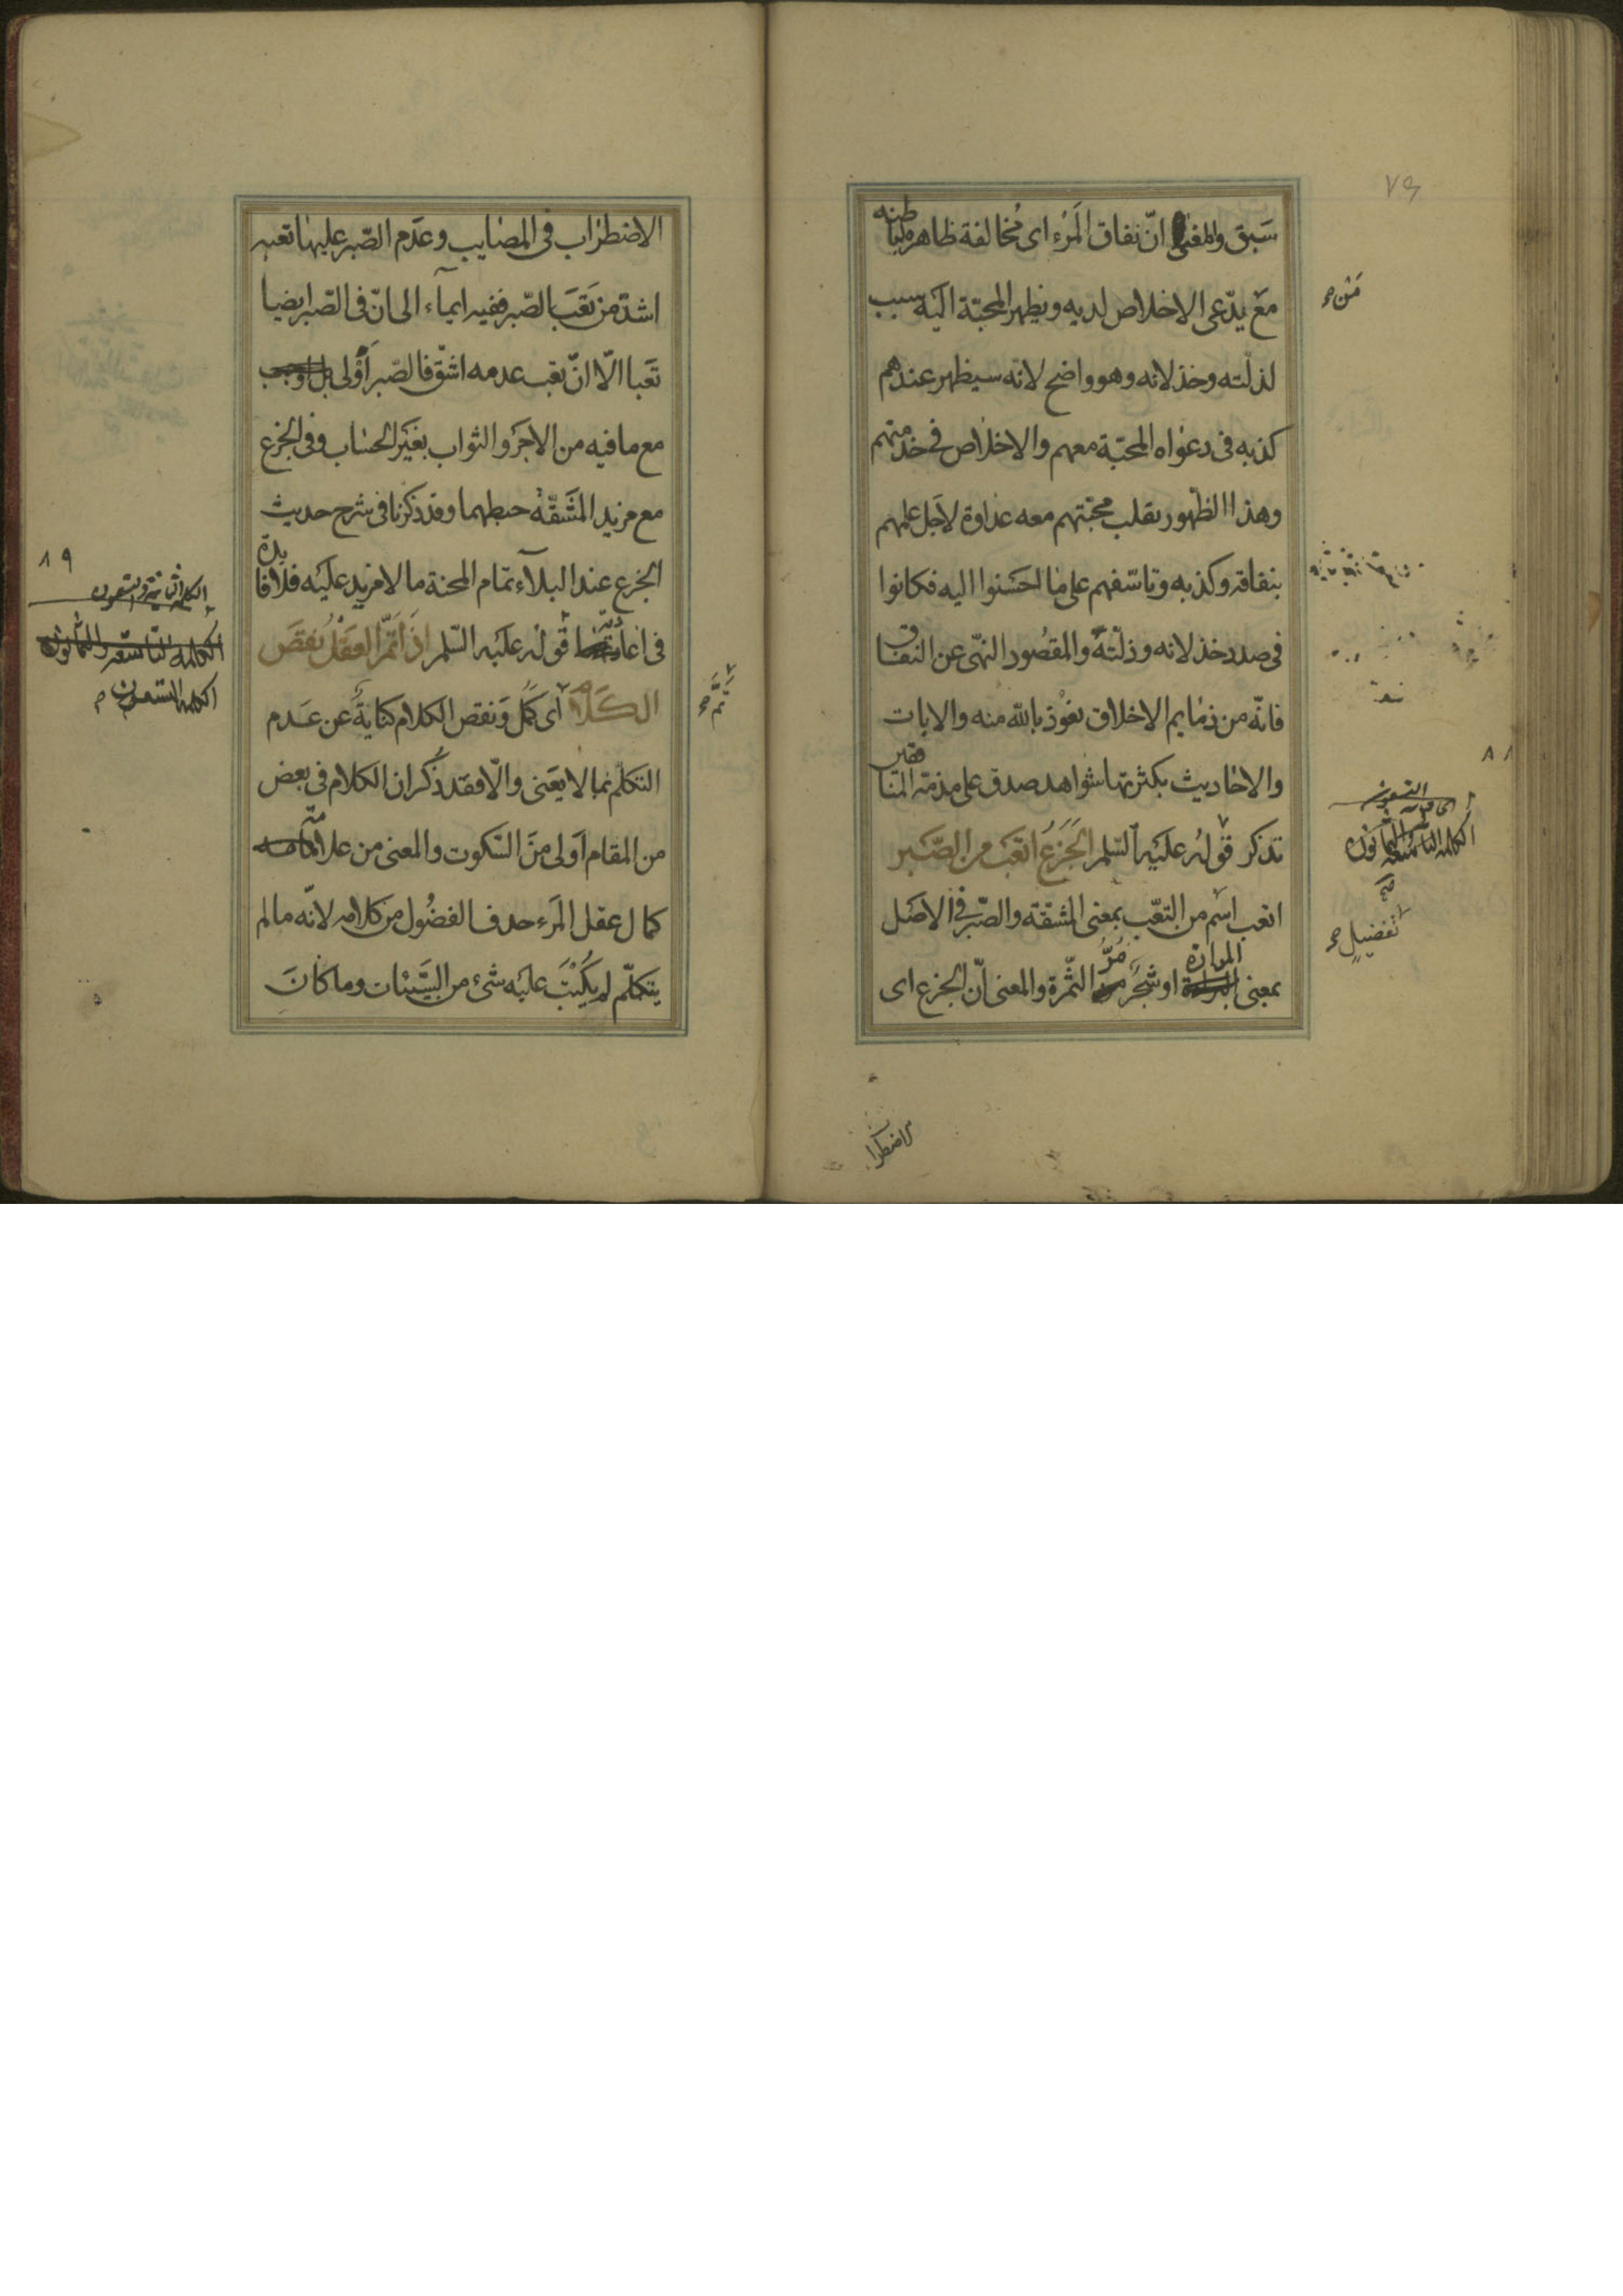 سَبق والمعنى انّ نفاق المَرْء اى مُخالفة ظاهره باطنه
مَعَ يدّعى الاخلاص لديه ويظهر المحبّة اليه سبب
لذلّته وخذلانه وهو واضح لانه سيظهر عندهم
كذبه فى دعواه المحبّة معهم والاخلاص فى خدمتهم
وهذا الظهور يقلب محبّتهم معه عداوة لاجل علمهم
بنفاقه وكذبه وتاسّفهم على ما احسَنوا اليه فكانوا
فى صدد خذلانه وذلّته والمقصُود النهى عن النفاق
فانّه من ذمايم الاخلاق نعوُذ بالله منه والايات
والاحاديث بكثرتها شواهد صدق على مذمّة المنافقين
تذكر قوله عليَه السّلم الجَزَعُ اتعَبُ من الصّبَر
اتعب اسْم من التعَب بمعنى المشقّة والصّبر فى الاصَل
بمعنى المرارة او شجَر مُرُّ الثّمرة والمعنى انّ الجزع اى
مَن صح
التسعون
الكلمة التاسعة والثمانون
تفضيلٍ صح
٨٨
الاضطراب
الاضطراب فى المصايب وعدَم الصّبر عليها تعبه
اشدّ من تَعَب الصّبر ففيه ايمآء الى انّ فى الصّبر ايضا
تَعَبا الّا انّ تعَب عدمه اشقّ فالصّبر أَوْلى
مع ما فيه من الاجَر والثواب بغيَر الحساب وفى الجزع
مع مزيد المشَقّة حبطهما وقد ذكرنا فى شرح حديث
الجزع عند البلآء تمام المحنة ما لا مزيد عليَه فلا فايدة
فى اعادته قوله عليَه السّلم اذَا تَمَّ العقَلُ نقصَ
الكَلَامُ اى كمُل ونقص الكلام كنايةٌ عن عَدم
التكلّم بما لا يعَنى والّا فقد ذُكر ان الكلام فى بعض
من المقام اَولى منَ السّكوت والمعنى من علامة
كمال عقل المَرء حذف الفضُول من كلامه لانّه ما لم
يتكلّم لم يكُتَبَ عليَه شئ من السَّيئات وما كانَ
٨٩
الكلمة الثانية والتسعون
الكلمة التاسعة والثمانون
الكلمة التسعون
تَمَّ صح